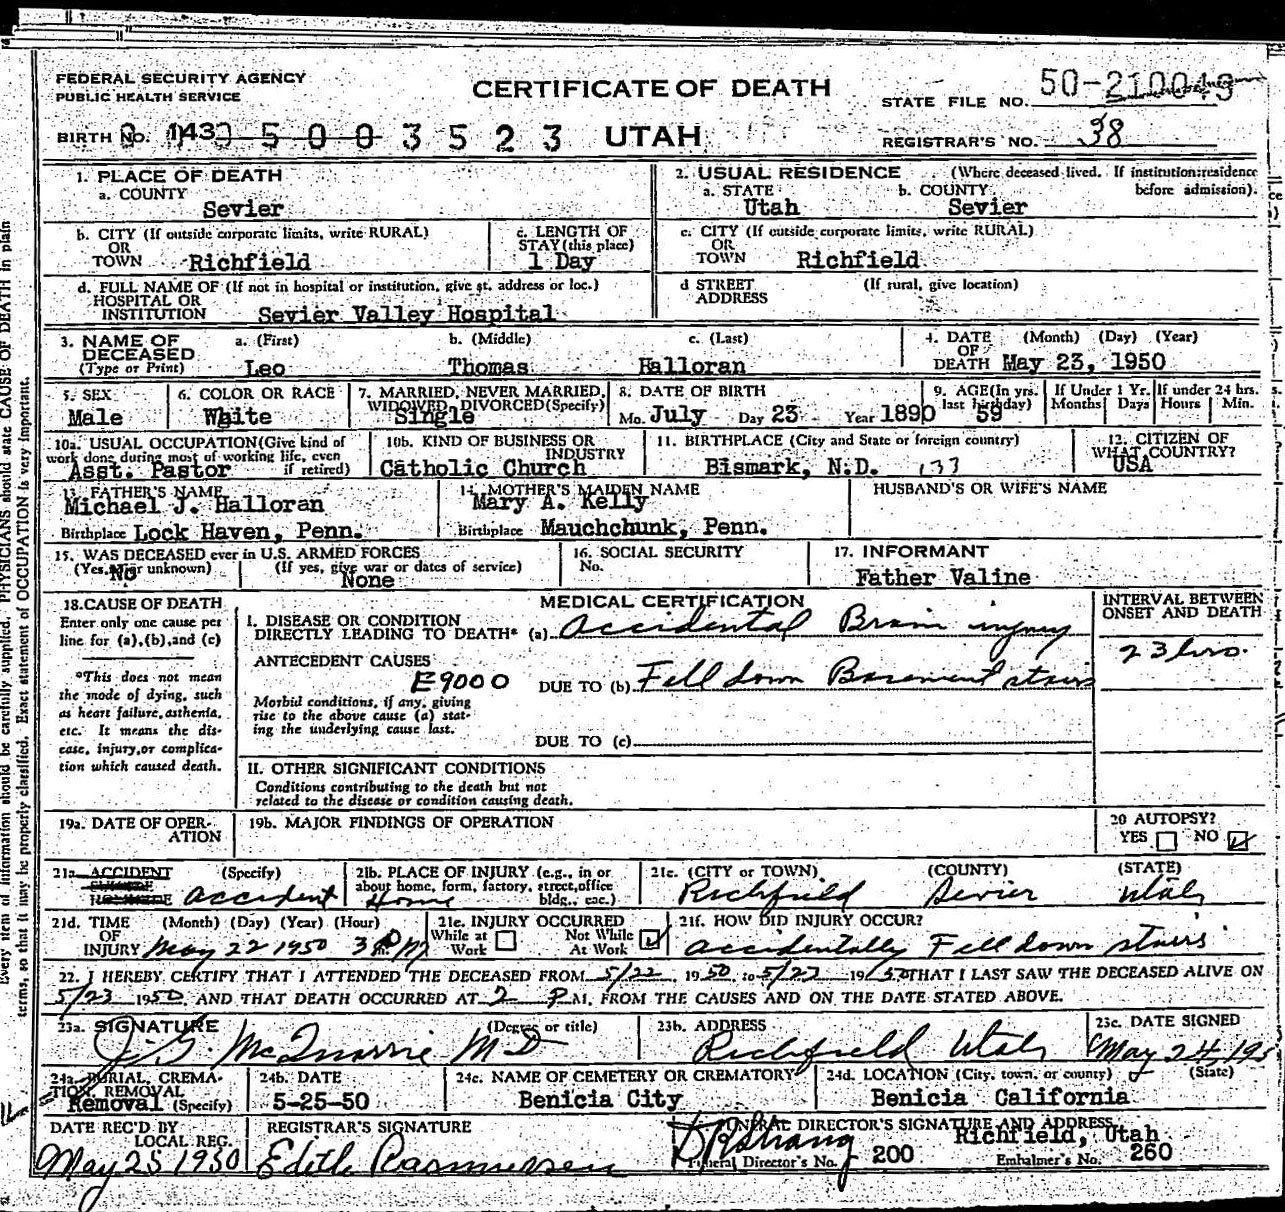 FEDERAL SECURITY AGENCY
PUBLIC HEALTH SERVICE
CERTIFICATE OF DEATH
STATE FILE NO. 50-210049
BIRTH NO. 143 5003523 UTAH
REGISTRAR'S NO. 38
1. PLACE OF DEATH
a. COUNTY
Sevier
2. USUAL RESIDENCE (Where deceased lived. If institution:residence before admission).
a. STATE b. COUNTY
Utah Sevier
b. CITY (If outside corporate limits, write RURAL)
OR
TOWN Richfield
c. LENGTH OF
STAY (this place)
1 Day
c. CITY (If outside corporate limits, write RURAL)
OR
TOWN Richfield
d. FULL NAME OF (If not in hospital or institution, give st. address or loc.)
HOSPITAL OR
INSTITUTION Sevier Valley Hospital
d STREET (If rural, give location)
ADDRESS
3. NAME OF DECEASED
(Type or Print)
a. (First) b. (Middle) c. (Last)
Leo Thomas Halloran
4. DATE (Month) (Day) (Year)
OF
DEATH May 23, 1950
5. SEX
Male
6. COLOR OR RACE
White
7. MARRIED, NEVER MARRIED,
WIDOWED, DIVORCED (Specify)
Single
8. DATE OF BIRTH
Mo. July Day 23 Year 1890
9. AGE (In yrs. last birthday) 59
If Under 1 Yr. If under 24 hrs.
Months Days Hours Min.
10a. USUAL OCCUPATION (Give kind of
work done during most of working life, even
if retired)
Asst. Pastor
10b. KIND OF BUSINESS OR
INDUSTRY
Catholic Church
11. BIRTHPLACE (City and State or foreign country)
Bismark, N.D. 133
12. CITIZEN OF
WHAT COUNTRY?
USA
13. FATHER'S NAME
Michael J. Halloran
Birthplace Lock Haven, Penn.
14. MOTHER'S MAIDEN NAME
Mary A. Kelly
Birthplace Mauchchunk, Penn.
HUSBAND'S OR WIFE'S NAME
15. WAS DECEASED ever in U.S. ARMED FORCES
(Yes, no, or unknown) (If yes, give war or dates of service)
No None
16. SOCIAL SECURITY
No.
17. INFORMANT
Father Valine
18. CAUSE OF DEATH
Enter only one cause per
line for (a), (b), and (c)
*This does not mean
the mode of dying, such
as heart failure, asthenia,
etc. It means the dis-
ease, injury, or complica-
tion which caused death.
MEDICAL CERTIFICATION
INTERVAL BETWEEN
ONSET AND DEATH
I. DISEASE OR CONDITION
DIRECTLY LEADING TO DEATH* (a) Accidental Brain injury
23 hrs.
ANTECEDENT CAUSES
E9000
DUE TO (b) Fell down Basement stairs
Morbid conditions, if any, giving
rise to the above cause (a) stat-
ing the underlying cause last.
DUE TO (c)
II. OTHER SIGNIFICANT CONDITIONS
Conditions contributing to the death but not
related to the disease or condition causing death.
19a. DATE OF OPER-
ATION
19b. MAJOR FINDINGS OF OPERATION
20 AUTOPSY?
YES NO
21a. ACCIDENT (Specify)
SUICIDE
HOMICIDE accident
21b. PLACE OF INJURY (e.g., in or
about home, form, factory, street, office
bldg., eac.)
Home
21c. (CITY or TOWN) (COUNTY) (STATE)
Richfield Sevier Utah
21d. TIME (Month) (Day) (Year) (Hour)
OF
INJURY May 22 1950 3 P M
21e. INJURY OCCURRED
While at Work Not While At Work
21f. HOW DID INJURY OCCUR?
accidentally Fell down stairs
22. I HEREBY CERTIFY THAT I ATTENDED THE DECEASED FROM 5/22 1950 to 5/23 1950 THAT I LAST SAW THE DECEASED ALIVE ON
5/23 1950, AND THAT DEATH OCCURRED AT 2 P M. FROM THE CAUSES AND ON THE DATE STATED ABOVE.
23a. SIGNATURE (Degree or title)
J. G. McQuarrie M D
23b. ADDRESS
Richfield Utah
23c. DATE SIGNED
May 24, 195
24a. BURIAL, CREMA-
TION, REMOVAL
Removal (Specify)
24b. DATE
5-25-50
24c. NAME OF CEMETERY OR CREMATORY
Benicia City
24d. LOCATION (City, town, or county) (State)
Benicia California
DATE REC'D BY
LOCAL REG.
May 25 1950
REGISTRAR'S SIGNATURE
Edith Rasmussen
FUNERAL DIRECTOR'S SIGNATURE AND ADDRESS
Richfield, Utah
Funeral Director's No. 200 Embalmer's No. 260
Every item of information should be carefully supplied. PHYSICIANS should state CAUSE OF DEATH in plain
terms, so that it may be properly classified. Exact statement of OCCUPATION is very important.